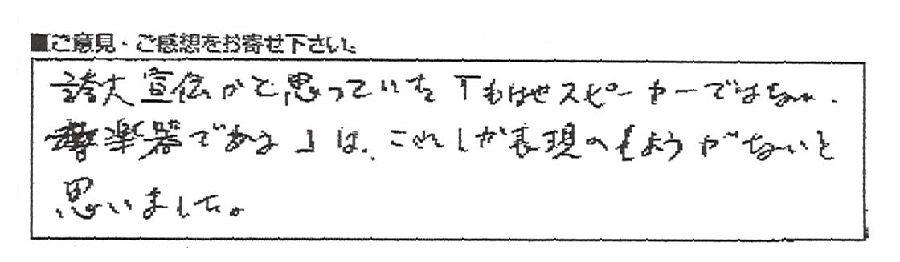 ■ご意見・ご感想をお寄せ下さい。
誇大宣伝かと思っていた「もはやスピーカーではない.
楽器である」は、これしか表現のしようがないと
思いました。